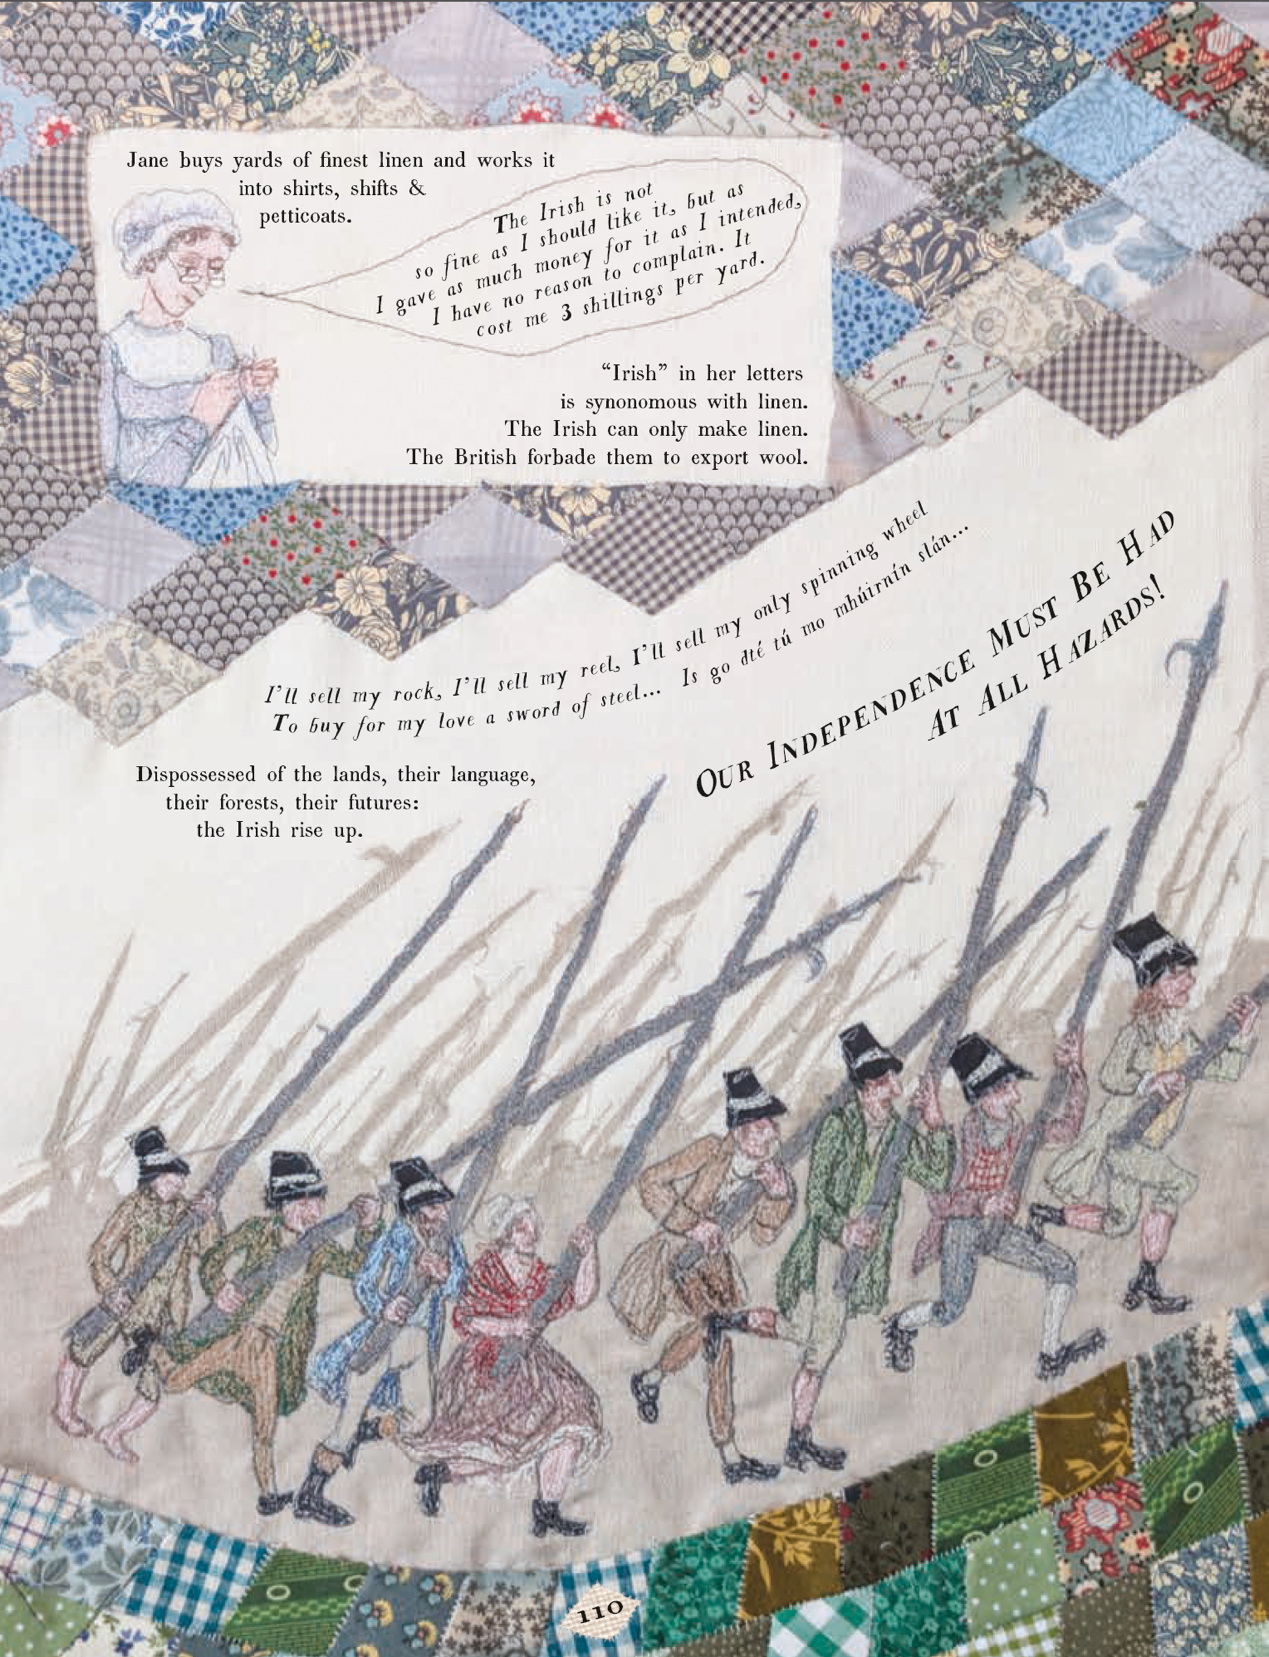 Jane buys yards of finest linen and works it
into shirts, shifts &
petticoats.
The Irish is not
so fine as I should like it, but as
I gave as much money for it as I intended,
I have no reason to complain. It
cost me 3 shillings per yard.
“Irish” in her letters
is synonomous with linen.
The Irish can only make linen.
The British forbade them to export wool.
I’ll sell my rock, I’ll sell my reel, I’ll sell my only spinning wheel
To buy for my love a sword of steel... Is go dté tú mo mhúirnín slán...
Our Independence Must Be Had
At All Hazards!
Dispossessed of the lands, their language,
their forests, their futures:
the Irish rise up.
110